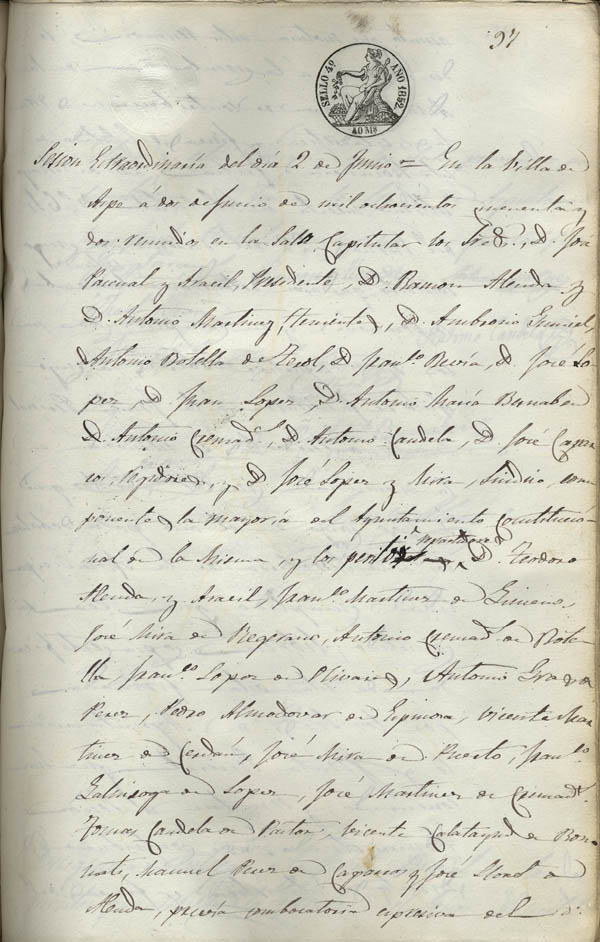 97
SELLO 4º AÑO 1852
40 MS
Sesion Extraordinaria del dia 2 de Junio = En la Villa de
Aspe á dos de Junio de mil ochocientos cincuenta y
dos reunidos en la Sala Capitular los Sres. D. José
Pascual y Aracil, Presidente, D. Ramon Alenda y
D. Antonio Martinez, tenientes, D. Ambrosio
Antonio Botella de Terol, D. Franco. Beviá, D. José Lo-
pez D. Juan Lopez, D. Antonio María Bernabeu
D. Antonio Cremads., D. Antonio Candela, D. José Caparr-
ros, Regidores, y D. José Lopez y Mira, Sindico, com
ponente la mayoría del Ayuntamiento Constitucio-
nal de la Misma, y los peritos repartidores D. Teodoro
Alenda, y Aracil, Franco. Martinez de Gimeno,
José Mira de Antonio Cremads. de Bote-
lla, Franco. Lopez de Olivares, Antonio de
Perez, Pedro Almodovar de Espinosa, Vicente Mar-
tinez de Cerdán, José Mira de Puerto, Franco.
Galinsoga de Lopez, José Martinez de Cremads.
Tomas Candela de Pastor, Vicente Calatayud de Bon-
mati, Manuel Perez de Caparros y José de
Alenda, previa combocatoria espresiva del